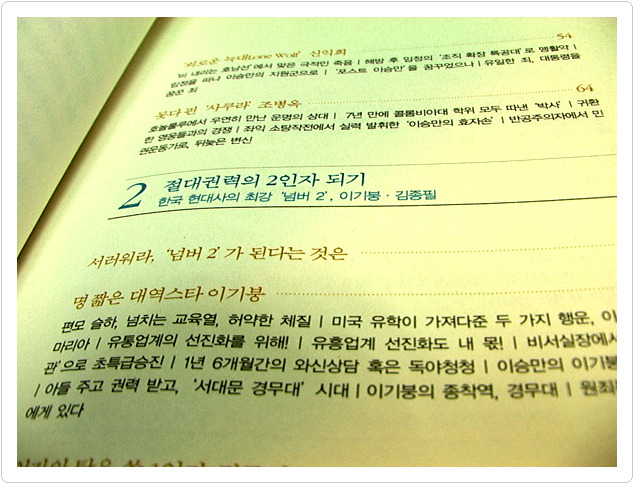 외로운 늑대Lone Wolf' 신익희 54
'비 내리는 호남선'에서 맞은 극적인 죽음 | 해방 후 임정의 '조직 확장 특공대'로 맹활약 |
임정을 떠나 이승만의 지원군으로 | '포스트 이승만'을 꿈꾸었으나 | 유일한 죄, 대통령을
꿈꾼 죄
못다 핀 '사쿠라' 조병옥 64
호놀룰루에서 우연히 만난 운명의 상대 | 7년 만에 콜롬비아대 학위 모두 따낸 '박사' | 귀환
한 영웅들과의 경쟁 | 좌익 소탕작전에서 실력 발휘한 '이승만의 효자손' | 반공주의자에서 민
권운동가로, 뒤늦은 변신
2 절대권력의 2인자 되기
한국 현대사의 최강 '넘버 2', 이기붕 · 김종필
서러워라, '넘버 2'가 된다는 것은
명 짧은 대역스타 이기붕
편모 슬하, 넘치는 교육열, 허약한 체질 | 미국 유학이 가져다준 두 가지 행운, 이
마리아 | 유통업계의 선진화를 위해! | 유흥업계 선진화도 내 몫! | 비서실장에서
관'으로 초특급승진 | 1년 6개월간의 와신상담 혹은 독야청청 | 이승만의 이기붕
| 아들 주고 권력 받고, '서대문 경무대' 시대 | 이기붕의 종착역, 경무대 | 원죄
에게 있다